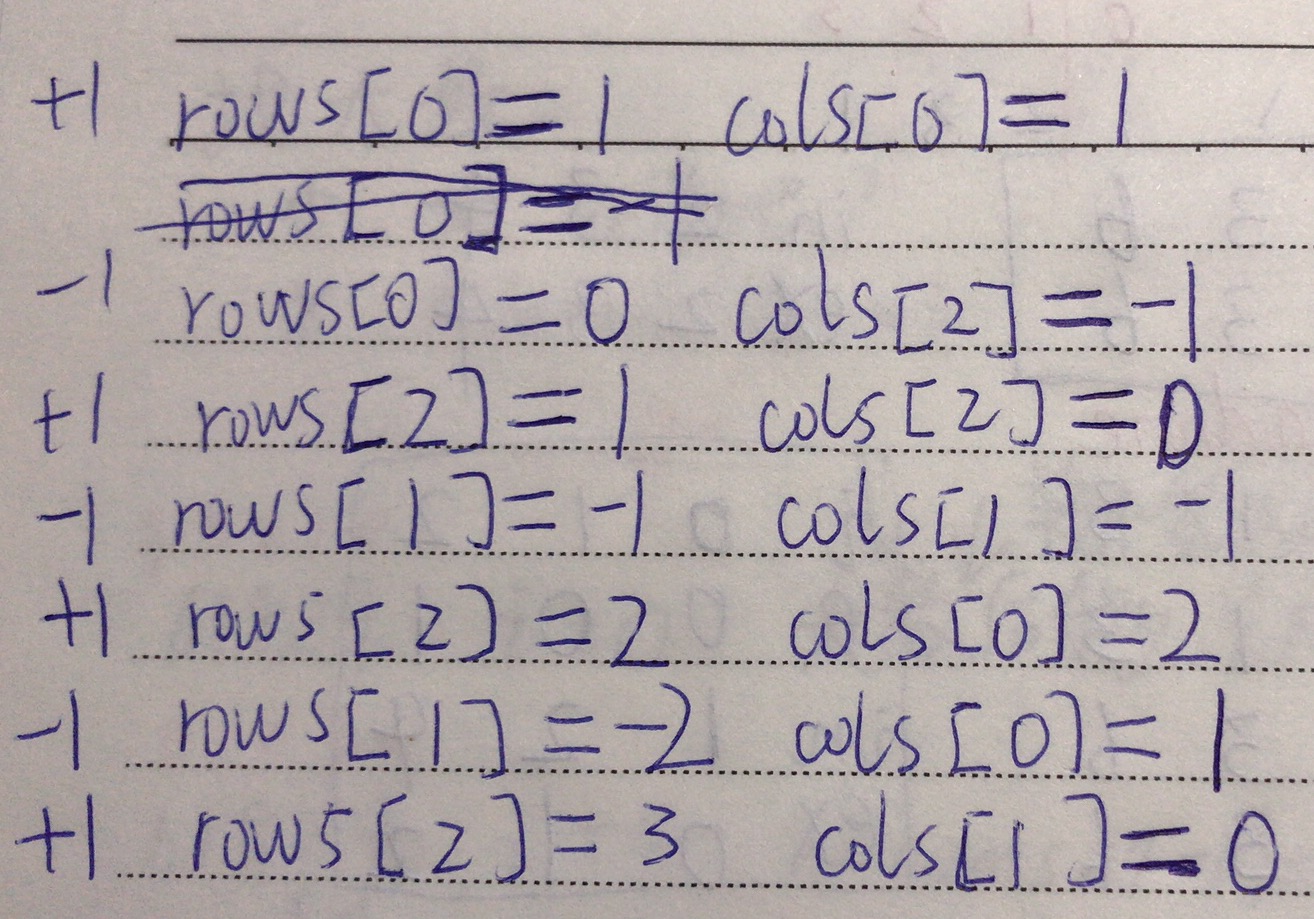 +1 rows[0]=1 cols[0]=1
rows[0]=-1
-1 rows[0]=0 cols[2]=-1
+1 rows[2]=1 cols[2]=0
-1 rows[1]=-1 cols[1]=-1
+1 rows[2]=2 cols[0]=2
-1 rows[1]=-2 cols[0]=1
+1 rows[2]=3 cols[1]=0